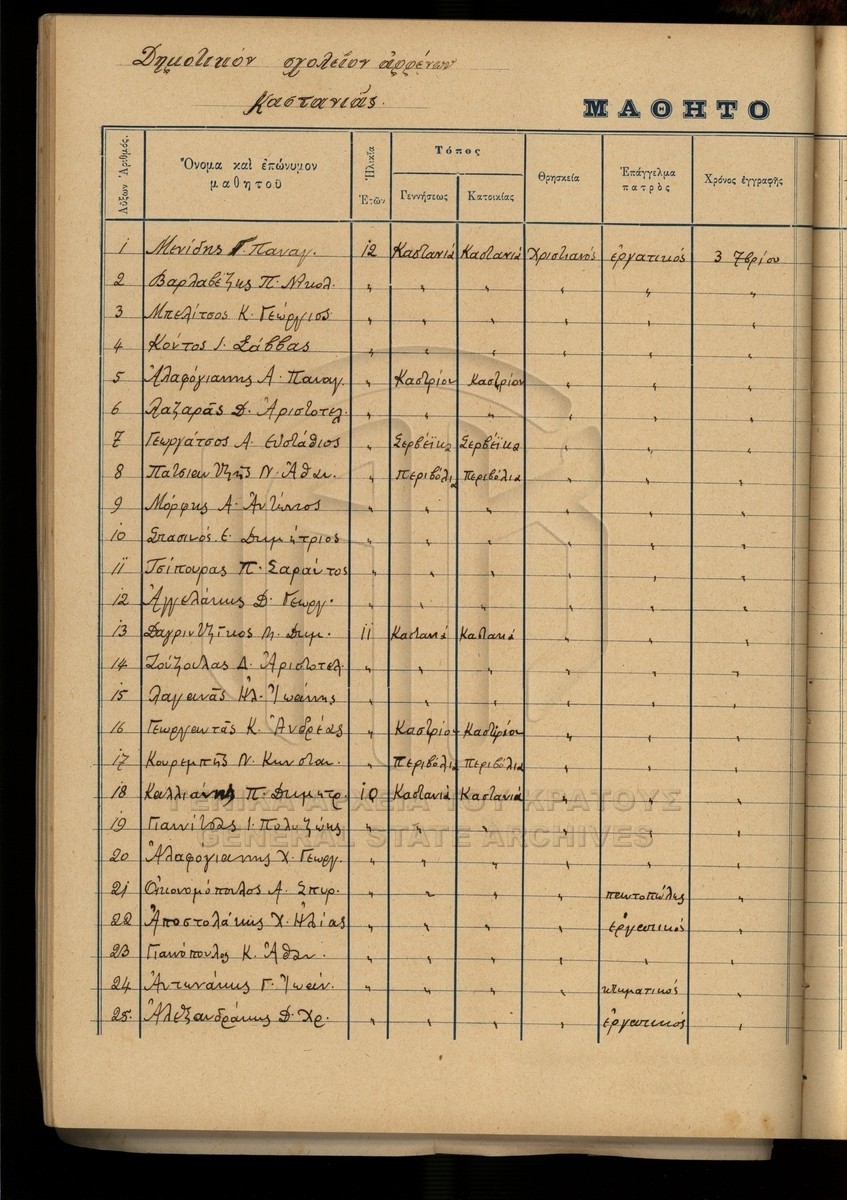 Δημοτικόν σχολεῖον ἀρρένων
Καστανιᾶς.
ΜΑΘΗΤΟ
Αὔξων Ἀριθμός. Ὄνομα καὶ ἐπώνυμον μαθητοῦ Ἡλικία Ἐτῶν Τόπος Γεννήσεως Κατοικίας Θρησκεία Ἐπάγγελμα πατρὸς Χρόνος ἐγγραφῆς
1 Μενίδης Γ. Παναγ. 12 Καστανιά Καστανιά Χριστιανός ἐργατικός 3 7βρίου
2 Βαρλαβέζης Π. Νικολ. " " " " " "
3 Μπελίτσος Κ. Γεώργιος " " " " " "
4 Κόντος Ι. Σάββας " " " " " "
5 Ἀλαφόγιαννης Α. Παναγ. " Καστρίον Καστρίον " " "
6 Λαζαρᾶς Δ. Ἀριστοτελ. " " " " " "
7 Γεωργάτσος Α. Εὐστάθιος " Σερβέϊκα Σερβέϊκα " " "
8 Πατσιαντζῆς Ν. Ἀθαν. " Περιβόλια Περιβόλια " " "
9 Μόρφης Α. Ἀντώνιος " " " " " "
10 Σπασινός Ε. Δημήτριος " " " " " "
11 Τσίπουρας Π. Σαράντος " " " " " "
12 Ἀγγελάκης Δ. Γεωργ. " " " " " "
13 Δαγριντζῖκος Δημ. 11 Καστανιά Καστανιά " " "
14 Ζούζουλας Δ. Ἀριστοτελ. " " " " " "
15 Λαγανᾶς Ἠλ. Ἰωάννης " " " " " "
16 Γεωργαντᾶς Κ. Ἀνδρέας " Καστρίον Καστρίον " " "
17 Κουρεμπῆς Ν. Κωνσταν. " Περιβόλια Περιβόλια " " "
18 Καλλιάνης Π. Δημητρ. 10 Καστανιά Καστανιά " " "
ΓΕΝΙΚΑ ΑΡΧΕΙΑ ΤΟΥ ΚΡΑΤΟΥΣ
19 Γιαννίτσας Ι. Πολυζώης " " " " " "
GENERAL STATE ARCHIVES
20 Ἀλαφογιαννης Χ. Γεωργ. " " " " " "
21 Οἰκονομόπουλος Α. Σπυρ. " " " " παντοπώλης "
22 Ἀποστολάκης Χ. Ἠλίας " " " " ἐργατικός "
23 Γιαννόπουλος Κ. Ἀθαν. " " " " " "
24 Ἀντωνάκης Γ. Ἰωάν. " " " " κτηματικός "
25. Ἀλεξανδράκης Δ. Χρ. " " " " ἐργατικός "